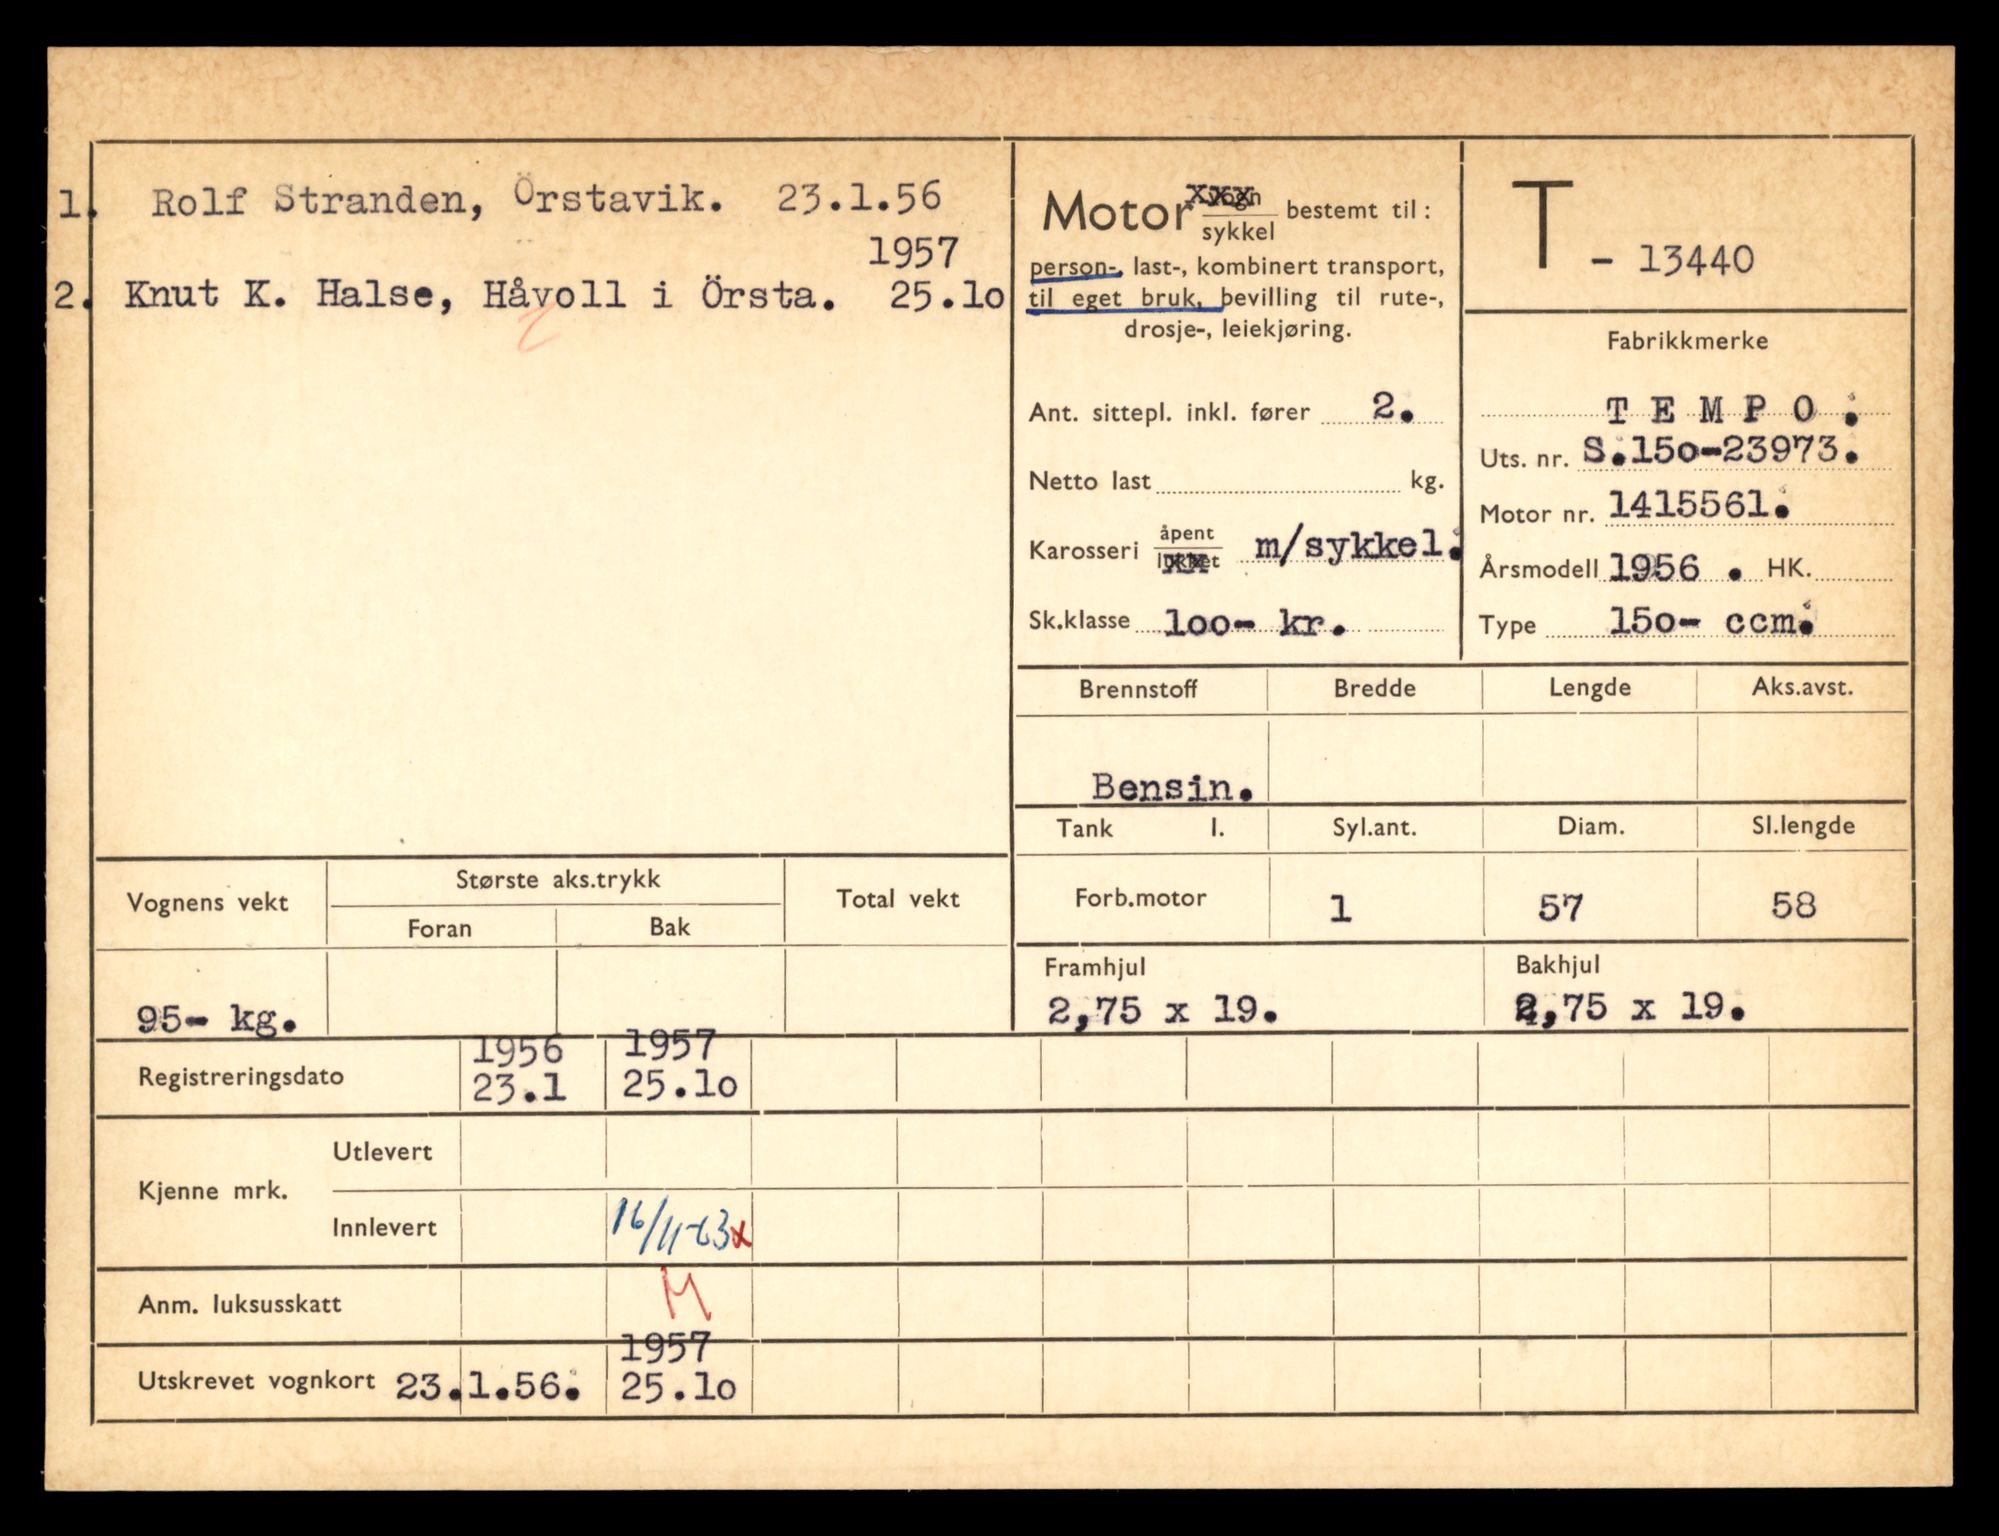 1. Rolf Stranden, Örstavik. 23.1.56
1957
2. Knut K. Halse, Håvoll i Örsta. 25.10
Motor vogn
sykkel bestemt til:
person-, last-, kombinert transport,
til eget bruk, bevilling til rute-,
drosje-, leiekjøring.
Ant. sittepl. inkl. fører 2.
Netto last kg.
Karosseri åpent
lukket m/sykkel.
Sk.klasse 100- kr.
T - 13440
Fabrikkmerke
TEMPO.
Uts. nr. S.150-23973.
Motor nr. 1415561.
Årsmodell 1956 . HK.
Type 150- ccm.
Brennstoff Bredde Lengde Aks.avst.
Bensin.
Tank l. Syl.ant. Diam. Sl.lengde
Forb.motor 1 57 58
Framhjul Bakhjul
2,75 x 19. 2,75 x 19.
Vognens vekt Største aks.trykk Total vekt
Foran Bak
95- kg.
1956 1957
Registreringsdato 23.1 25.10
Kjenne mrk. Utlevert
Innlevert 16/11-63 x
Anm. luksusskatt M
1957
Utskrevet vognkort 23.1.56. 25.10